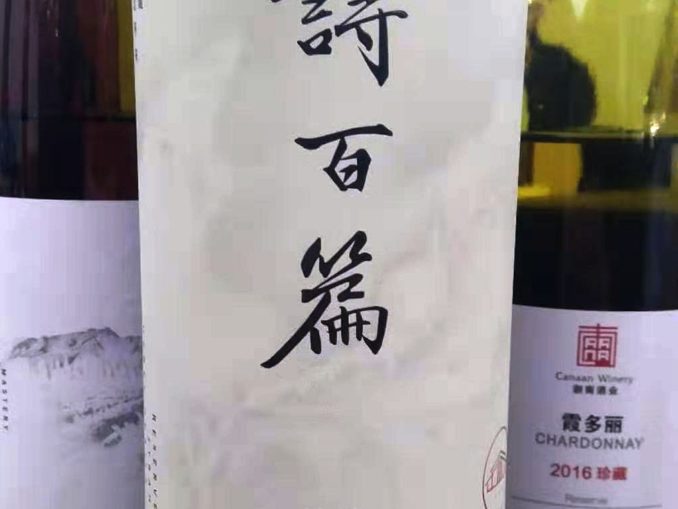 詩百篇
MASTERY
RESERVE
Canaan Winery
迦南酒业
霞多丽
CHARDONNAY
2016 珍藏
Reserve